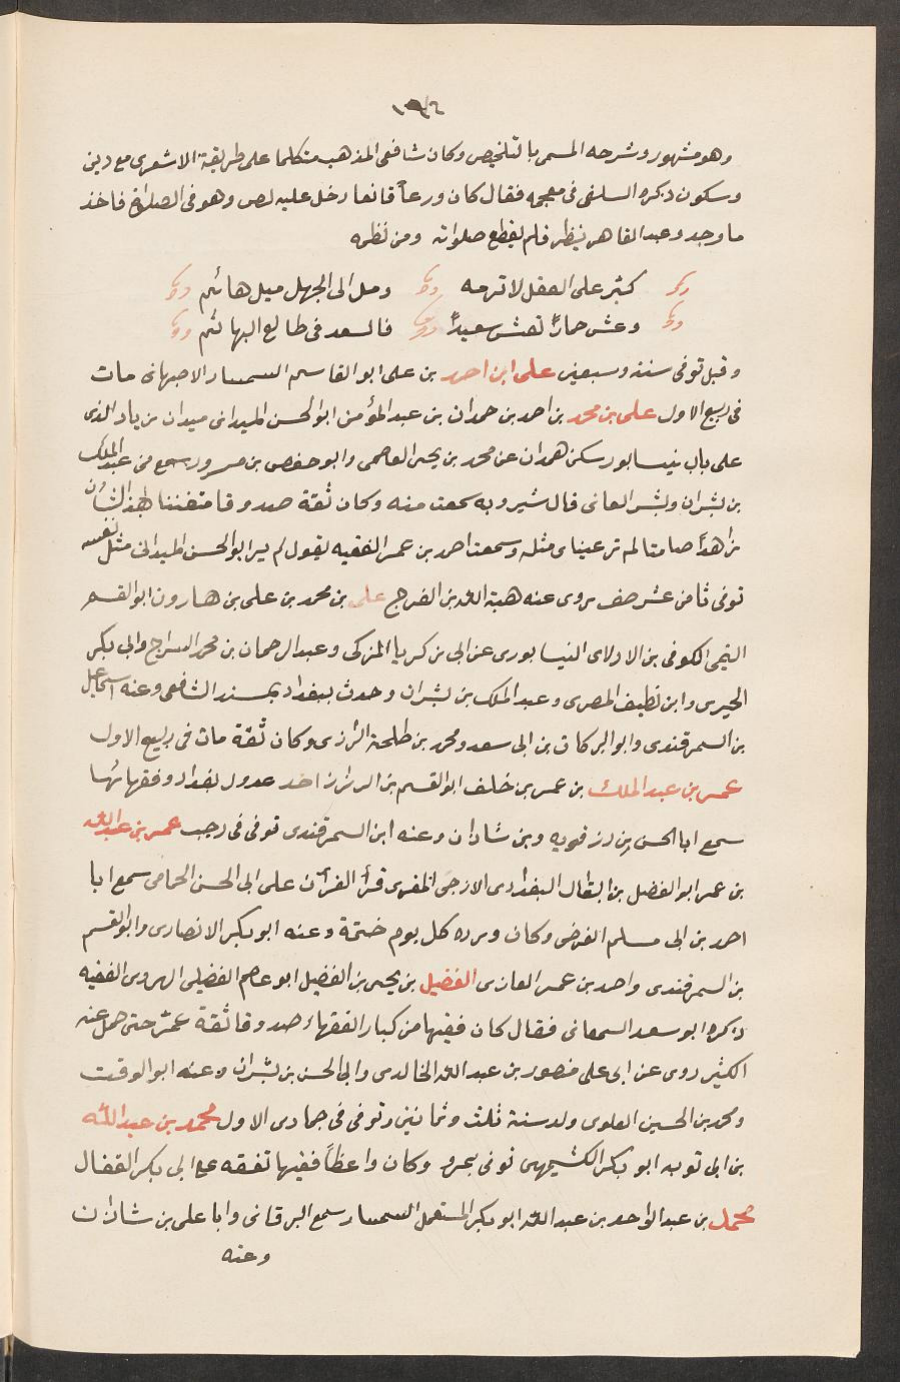 ١٩٤
وهو مشهور وشرحه المسمى بالتلخيص وكان شافعى المذهب متكلما على طريقة الاشعرى مع دين
وسكون ذكره السلفى فى معجمه فقال كان ورعاً قانعا دخل عليه لص وهو فى الصلاة فاخذ
ما وجد وعبد القاهر ينظر فلم يقطع صلواته ومن نظمه
كبّر على العقل لا ترمه ومل الى الجهل ميل هائم
وعش حماراً تعش سعيداً فالسعد فى طالع البهائم
وقيل توفى سنة وسبعين على ابن احمد بن على ابو القاسم السمسار الاصبهانى مات
فى ربيع الاول على بن محمد بن احمد بن حمدان بن عبد المؤمن ابو الحسن الميدانى ميدان زياد الذى
على باب نيسابور سكن همدان عن محمد بن يحيى العاصمى وابو حفص بن مسرور سمع من عبد الملك
بن بشران وبشر الفانى قال شيرويه سمعت منه وكان ثقة صدوقا متفننا لهذا الشأن
زاهداً صامتا لم تر عيناى مثله وسمعت احمد بن عمر الفقيه يقول لم ير ابو الحسن الميدانى مثل نفسه
توفى ثامن عشر صفر روى عنه هبة الله بن الفرج على بن محمد بن على بن هارون ابو القسم
التيمى الكوفى بن الادلاى النيسابورى عن ابى زكريا المزكى وعبد الرحمان بن محمد السراج وابى بكر
الحيرى وابن نظيف المصرى وعبد الملك بن بشران وحدث ببغداد بمسند الشافعى وعنه اسماعيل
بن السمرقندى وابو البركات بن ابى سعد ومحمد بن طلحة الرازى وكان ثقة مات فى ربيع الاول
عمر بن عبد الملك بن عمر بن خلف ابو القسم بن الرزاز احد عدول بغداد وفقهائها
سمع ابا الحسن بن رزقويه وبن شاذان وعنه ابن السمرقندى توفى فى رجب عمر بن عبد الله
بن عمر ابو الفضل بن البقال البغدادى الازجى المقرى قرأ القرآن على ابى الحسن الحمامى سمع ابا
احمد بن ابى مسلم الفرضى وكان ورده كل يوم ختمة وعنه ابو بكر الانصارى وابو القسم
بن السمرقندى واحمد بن عمر الغازى الفضيل بن يحيى بن الفضيل ابو عاصم الفضيلى الهروى الفقيه
ذكره ابو سعد السمعانى فقال كان فقيها من كبار الفقهاء صدوقا ثقة عمّر حتى حمل عنه
الكثير روى عن ابى على منصور بن عبد الله الخالدى وابى الحسن بن بشران وعنه ابو الوقت
ومحمد بن الحسين العلوى ولد سنة ثلث وثمانين وتوفى فى جمادى الاول محمد بن عبد الله
بن ابى توبه ابو بكر الكشميهنى توفى بمرو وكان واعظاً فقيها تفقه على ابى بكر القفال
محمد بن عبد الواحد بن عبد الله ابو بكر المستعمل السمسار سمع البرقانى وابا على بن شاذان
وعنه